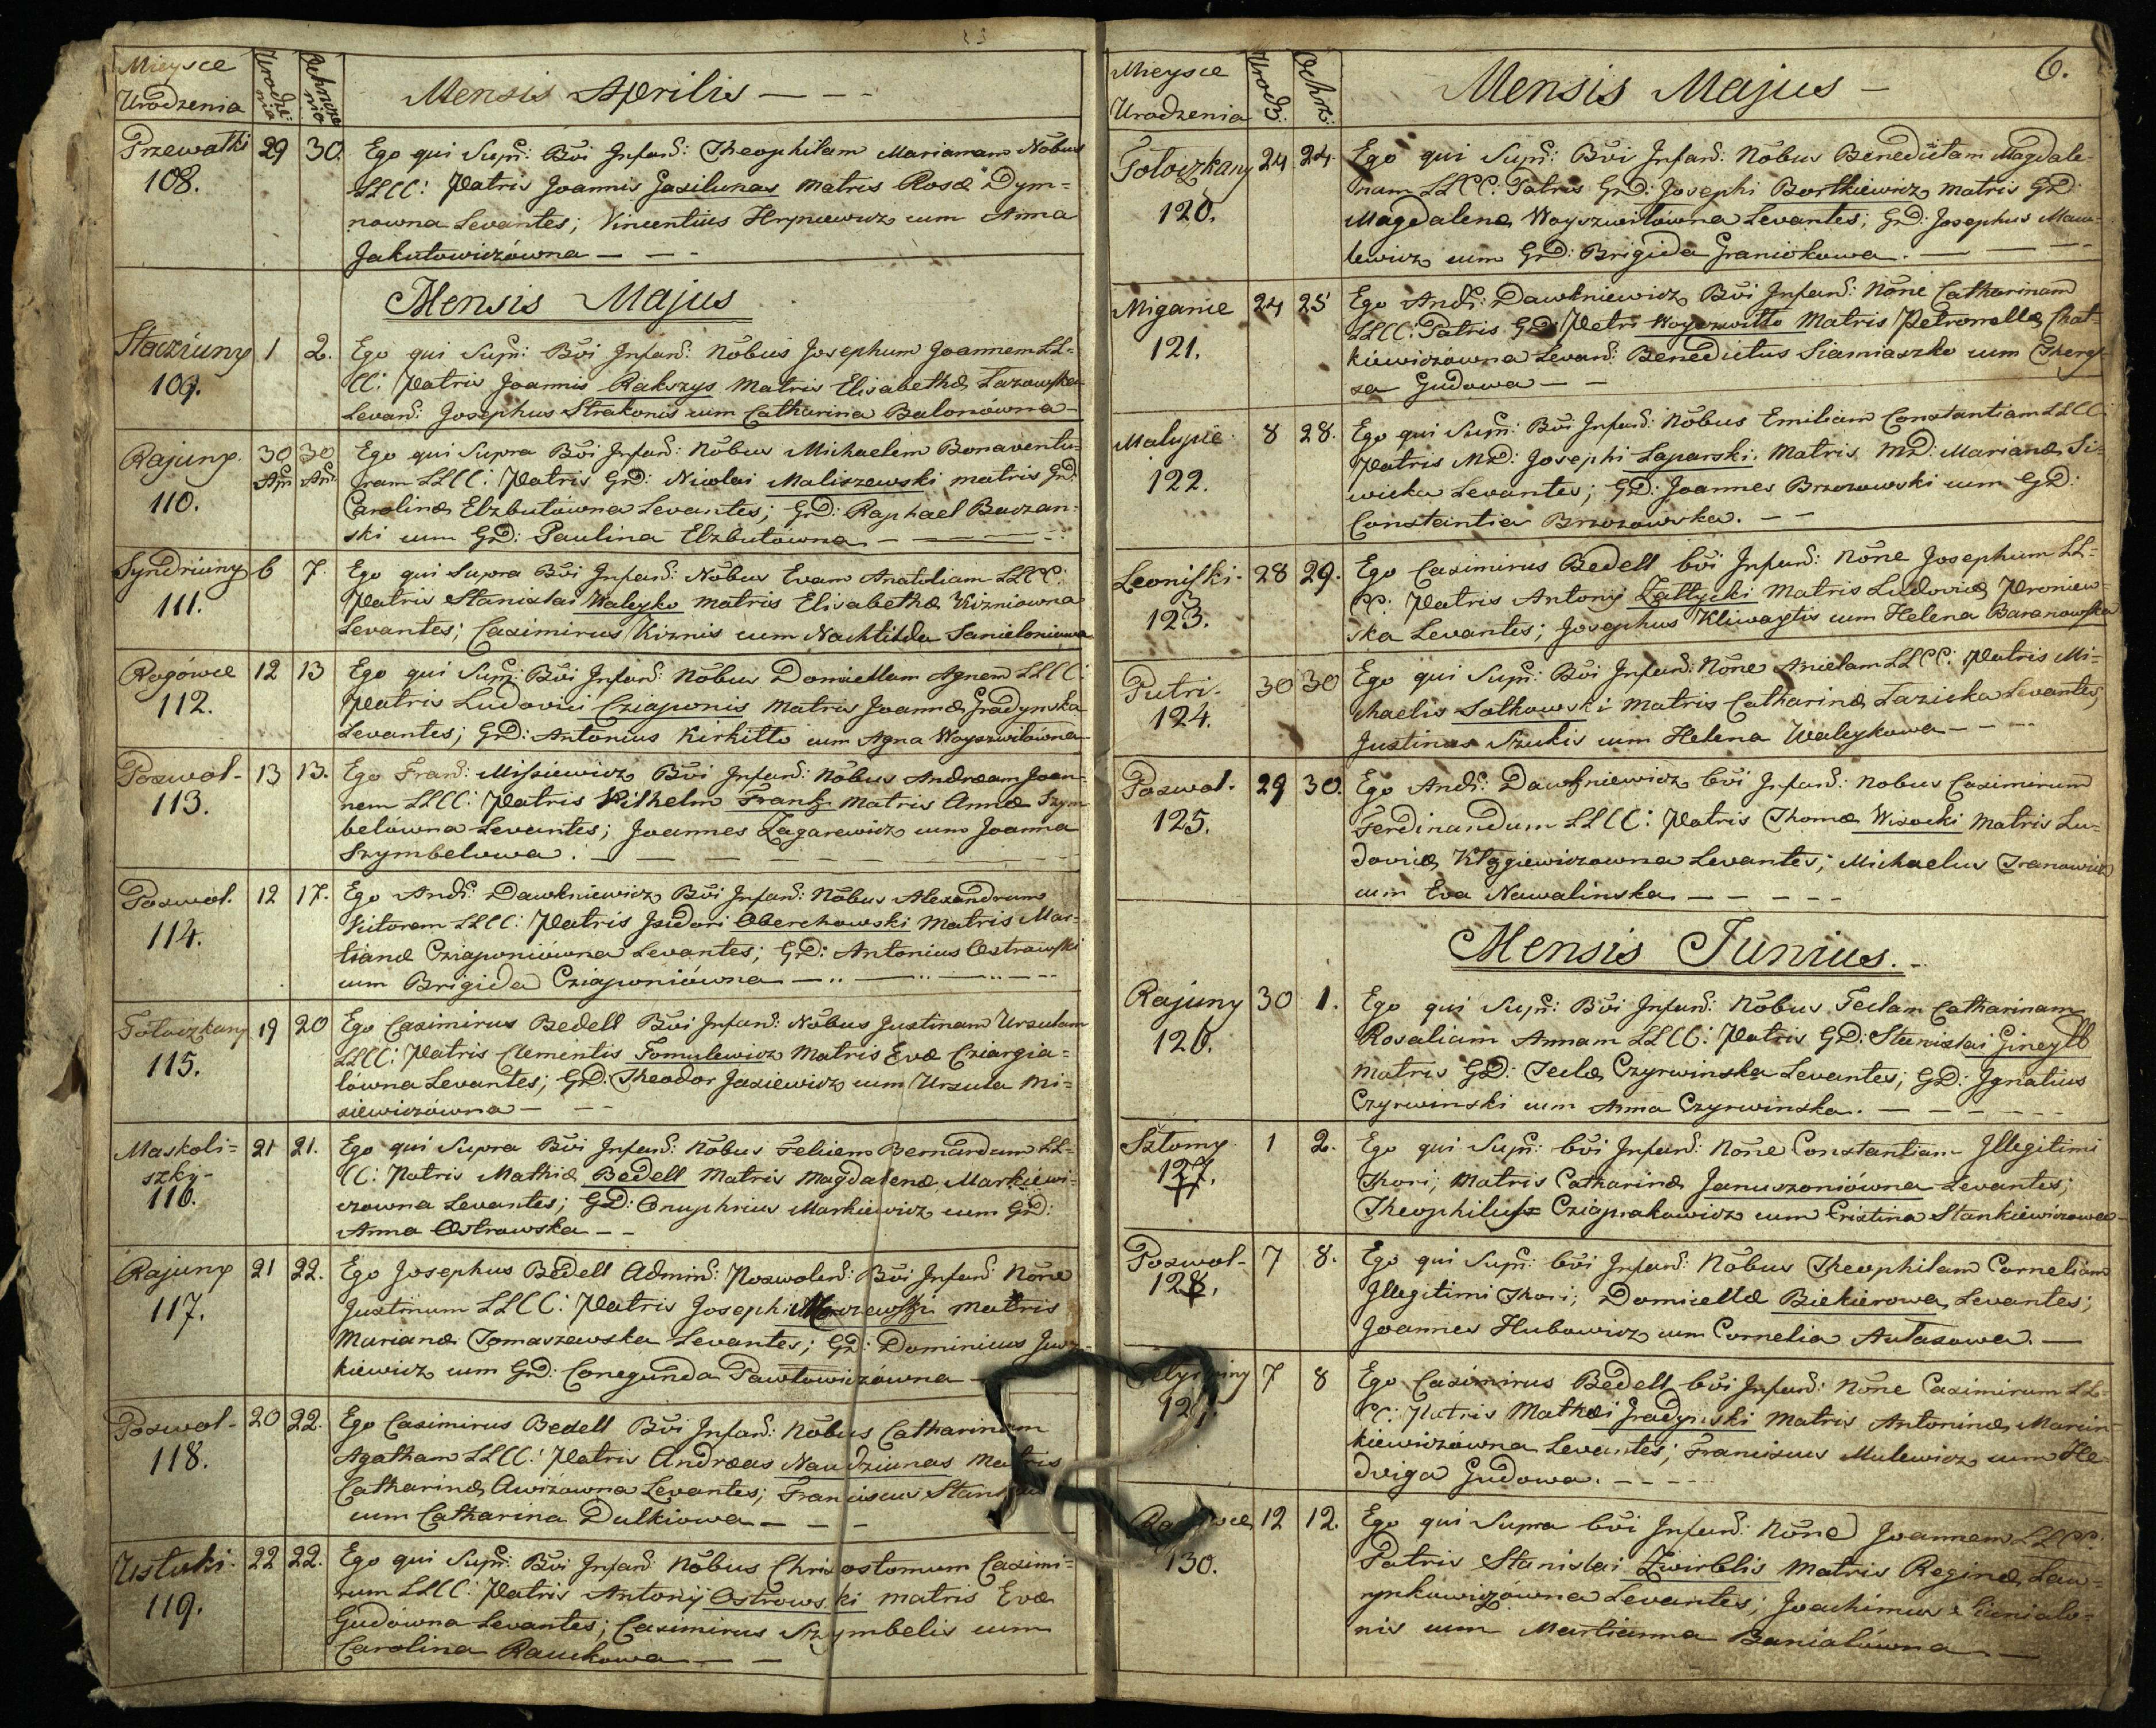 Mieysce
Urodzenia
Urodzenia
Ochrzczenia
Mensis Aprilis — — —
Przewałki 29 30. Ego qui Supr: Bvi Infan: Nobus
Theophilam Mariannam
108. LLCC: Patris Joannis Gasilunas Matris Rosæ Dym=
nowna Levantes; Vincentius Hryniewicz cum Anna
Jakutowiczówna — — -
Mensis Majus
Stacziuny 1 2. Ego qui Supr: Bvi Infan: Nobus Josephum Joannem LL=
109. CC: Patris Joannis Rakszys Matris Elisabethæ Łazowska
Levan: Josephus Strakonis cum Catharina Balonówna —
Rajuny. 30 Apr 30 Apr Ego qui Supra Bvi Infan: Nobus Michaelem Bonaventu=
110. ram LLCC: Patris GD: Nicolai Maliszewski matris GD:
Carolinæ Elzbutówna Levantes; GD: Raphael Baczan=
ski cum GD: Paulina Elzbutowna — — — —
Syndriuny 6 7. Ego qui Supra Bvi Infan: Nobus Evam Anatoliam LLCC:
111. Patris Stanislai Waleyko matris Elisabethæ Kizniowna
Levantes; Casimirus Kiznis cum Nachtilda Sanieloniowa
Rogówce 12 13 Ego qui Supr: Bvi Infan: Nobus Domicellam Agnem LLCC:
112. Patris Ludovici Cziaponis Matris Joannæ Gradynska
Levantes; GD: Antonius Kirkiłło cum Agna Woyszwiłówna
Poswol- 13 13. Ego Fran: Misiewicz Bvi Infan: Nobus Andream Joan=
113. nem LLCC: Patris Wilhelm Frantz Matris Annæ Szym=
belówna Levantes; Joannes Zagarewicz cum Joanna
Szymbelowa. — — — —
Poswol. 12 17. Ego And: Dawkniewicz Bvi Infan: Nobus Alexandrum
114. Victorem LLCC: Patris Isidori Oberchowski Matris Mar=
tianæ Cziaponiówna Levantes; GD: Antonius Ostrowski
cum Brigida Cziaponiówna — — — —
Tołoczkany 19 20 Ego Casimirus Bedell Bvi Infan: Nobus Justinam Ursulam
115. LLCC: Patris Clementis Tomulewicz Matris Evæ Cziargia=
łówna Levantes; GD: Theodor Jasiewicz cum Ursula Mi=
siewiczówna — — —
Maskoli= 21 21. Ego qui Supra Bvi Infan: Nobus Felicem Bernardum LL=
szky-
116. CC: Patris Mathiæ Bedell Matris Magdalenæ Markiewi=
czowna Levantes; GD: Onuphrius Markiewicz cum GD:
Anna Ostrowska — —
Rajuny 21 22. Ego Josephus Bedell Admin: Poswolen: Bvi Infan: None
117. Justinum LLCC: Patris Josephi matris
Marianæ Tomaszewska Levantes; GD: Dominicus Jusz=
kiewicz cum GD: Conegunda Pawłowiczówna —
Poswol- 20 22. Ego Casimirus Bedell Bvi Infan: Nobus Catharinam
118. Agatham LLCC: Patris Andreas Naudziunas Matris
Catharinæ Awizówna Levantes; Franciscus
cum Catharina Dulkiowa — — —
Ustuki. 22 22. Ego qui Supr: Bvi Infan: Nobus Chrisostomum Casimi=
119. rum LLCC: Patris Antonij Ostrowski matris Evæ
Gudowna Levantes; Casimirus Szymbelis cum
Carolina Rauckowa — —
6.
Mieysce
Urodzenia
Urodz:
Ochrz:
Mensis Majus —
Tołoczkany 24 24. Ego qui Supr: Bvi Infan: Nobus Benedictam Magdale=
120. nam LLCC: Patris GD: Josephi Bortkiewicz matris GD:
Magdalenæ Woyszwiłowna Levantes; GD: Josephus Maw=
lewicz cum GD: Brigida Graniokowa. — — —
Miganie 24 25 Ego And: Dawkniewicz Bvi Infan: None Catharinam
121. LLCC: Patris GD: Petri Woyszwiłło Matris Petronellæ Chat=
kiewiczówna Levan: Benedictus Siamiaszko cum There=
sa Gudowa — —
Malupie 8 28. Ego qui Supr: Bvi Infan: Nobus Emiliam Constantiam LLCC:
122. Patris MD: Josephi Łaparski Matris MD: Marianæ Si=
wicka Levantes; GD: Joannes Brzozowski cum GD:
Constantia Brzozowska. — —
Leoniszki. 28 29. Ego Casimirus Bedell bvi Infan: None Josephum LL=
123. CC: Patris Antonij Załtycki Matris Ludovicæ Proniew=
ska Levantes; Josephus Kliwagtis cum Helena Baranowska
Putri. 30 30 Ego qui Supr: Bvi Infan: None Anielam LLCC: Patris Mi=
124. chaelis Sołkowski Matris Catharinæ Łazicka Levantes;
Justinus Szukis cum Helena Waleykowa — — —
Poswol. 29 30. Ego And: Dawkniewicz bvi Infan: Nobus Casimirum
125. Ferdinandum LLCC: Patris Thomæ Wisocki Matris Lu=
dovicæ Kłągiewiczowna Levantes; Michaelus Iranowicz
cum Eva Nawalinska — — — —
Mensis Junius. —
Rajuny 30 1. Ego qui Supr: Bvi Infan: Nobus Teclam Catharinam
126. Rosaliam Annam LLCC: Patris GD: Stanislai Gineyłł
Matris GD: Teclæ Czyrwinska Levantes; GD: Ignatius
Czyrwinski cum Anna Czyrwinska. — — — —
Sztomy. 1 2. Ego qui Supr: bvi Infan: None Constantiam Illegitimi
127. Thori; Matris Catharinæ Januszoniówna Levantes;
Theophilus Cziaprakowicz cum Cristina Stankiewiczowa —
Poswol- 7 8. Ego qui Supr: bvi Infan: Nobus Theophilam Corneliam
128. Illegitimi Thori; Domicellæ Biekierowa Levantes;
Joannes Hubowicz cum Cornelia Autasowa. —
7 8 Ego Casimirus Bedell bvi Infan: None Casimirum LL=
CC: Patris Mathæi Gradynski Matris Antoninæ Marcin=
kiewiczówna Levantes; Franciscus Mulewicz cum He=
dviga Gudowa. — —
12 12. Ego qui Supra bvi Infan: None Joannem LLCC:
130. Patris Stanislai Zwirblis Matris Reginæ Law=
rynkowiczówna Levantes; Joachimus
nis cum Martianna Banialówna —